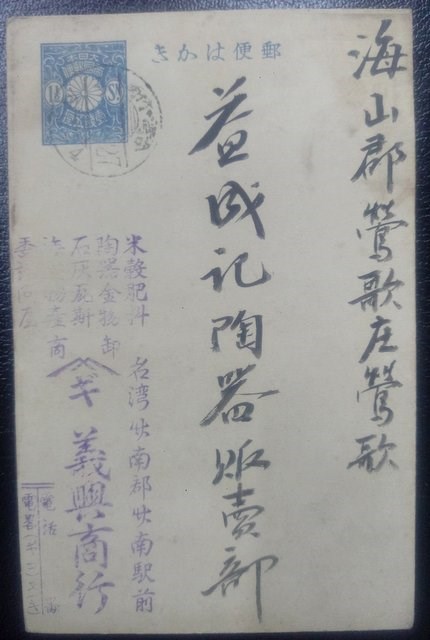 郵便はかき
海山郡鶯歌庄鶯歌
益成記陶器販賣部
台湾竹南郡竹南駅前
米穀肥料
陶器金物卸
石灰瓦斯
商
ギ
義興商行
電話